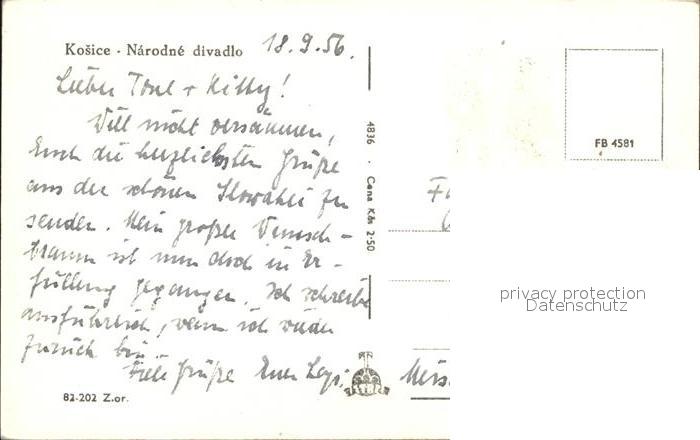 Košice - Národné divadlo 18.9.56.
Lieber Toni + Kitty!
Will nicht versäumen,
Euch die herzlichsten Grüße
aus der schönen Slowakei zu
senden. Mein großer Wunsch-
traum ist nun doch in Er-
füllung gegangen. Ich schreibe
ausführlich, wenn ich wieder
zurück bin.
Viele Grüße Euer
82-202 Z.or.
4836 · Cena Kčs 2·50
FB 4581
privacy protection
Datenschutz